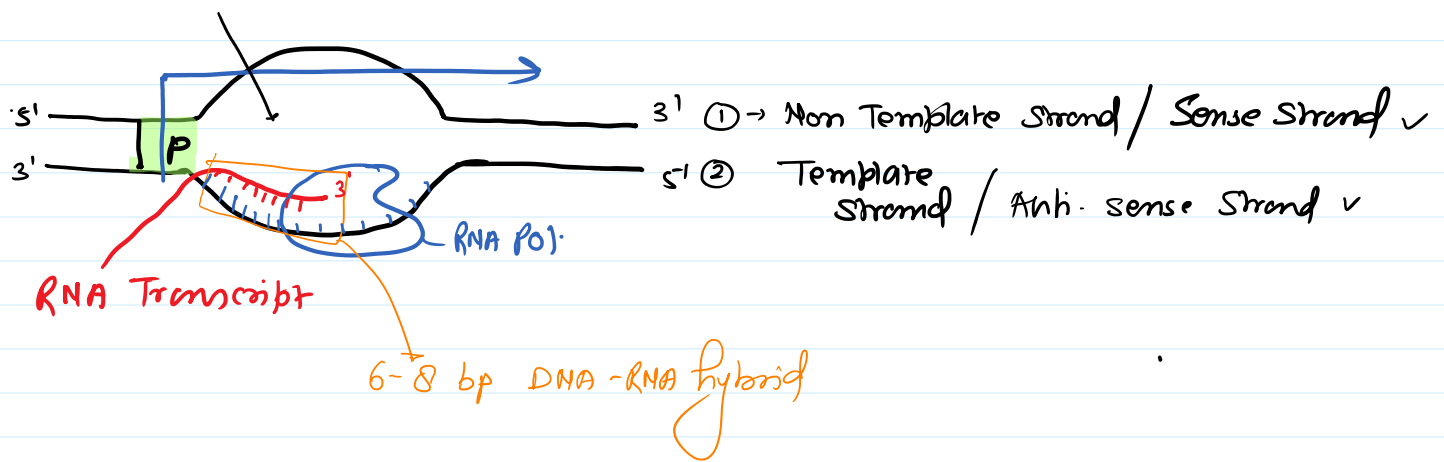 5' 3' ① → Non Template Strand / Sense Strand ✓
P
3' 5' ② Template Strand / Anti-sense Strand ✓
3'
RNA Pol.
RNA Transcript
6-8 bp DNA-RNA hybrid